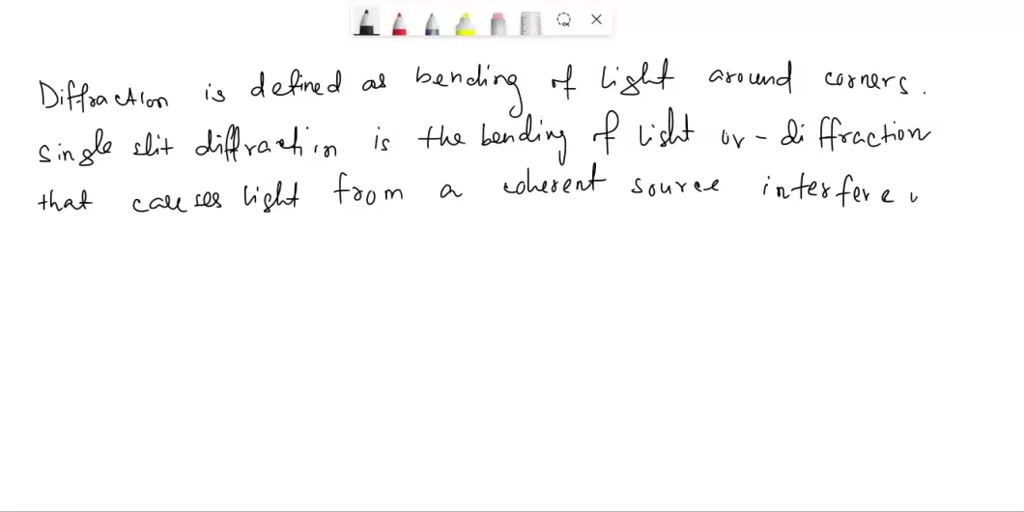 Diffraction is defined as bending of light around corners.
single slit diffraction is the bending of light or - diffraction
that causes light from a coherent source interfere